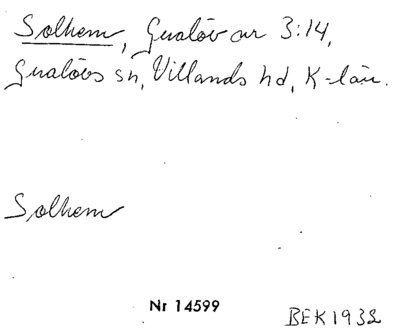 Solhem, Gualöv nr 3:14,
Gualövs sn, Villands hd, K-län.
Solhem
Nr 14599
BEK1932